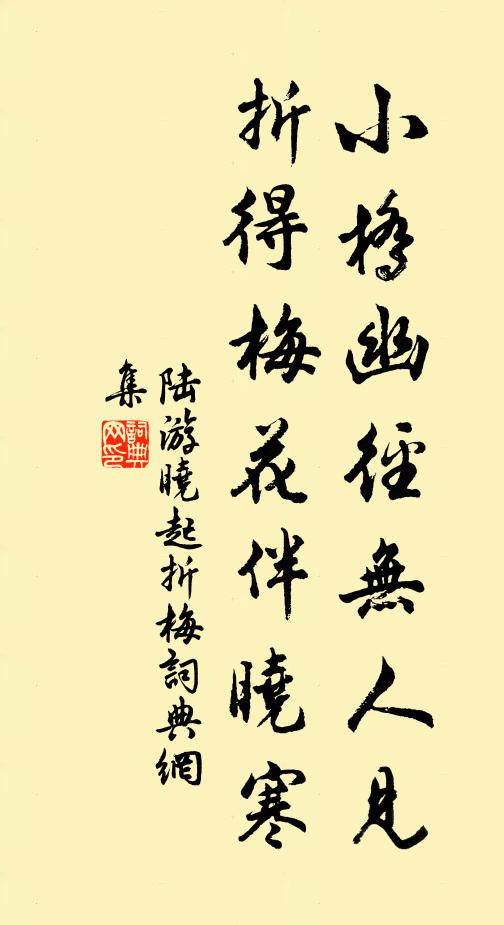 小橋幽徑無人見
折得梅花伴曉寒
陸游曉起折梅詞典網
集
詞典
网印